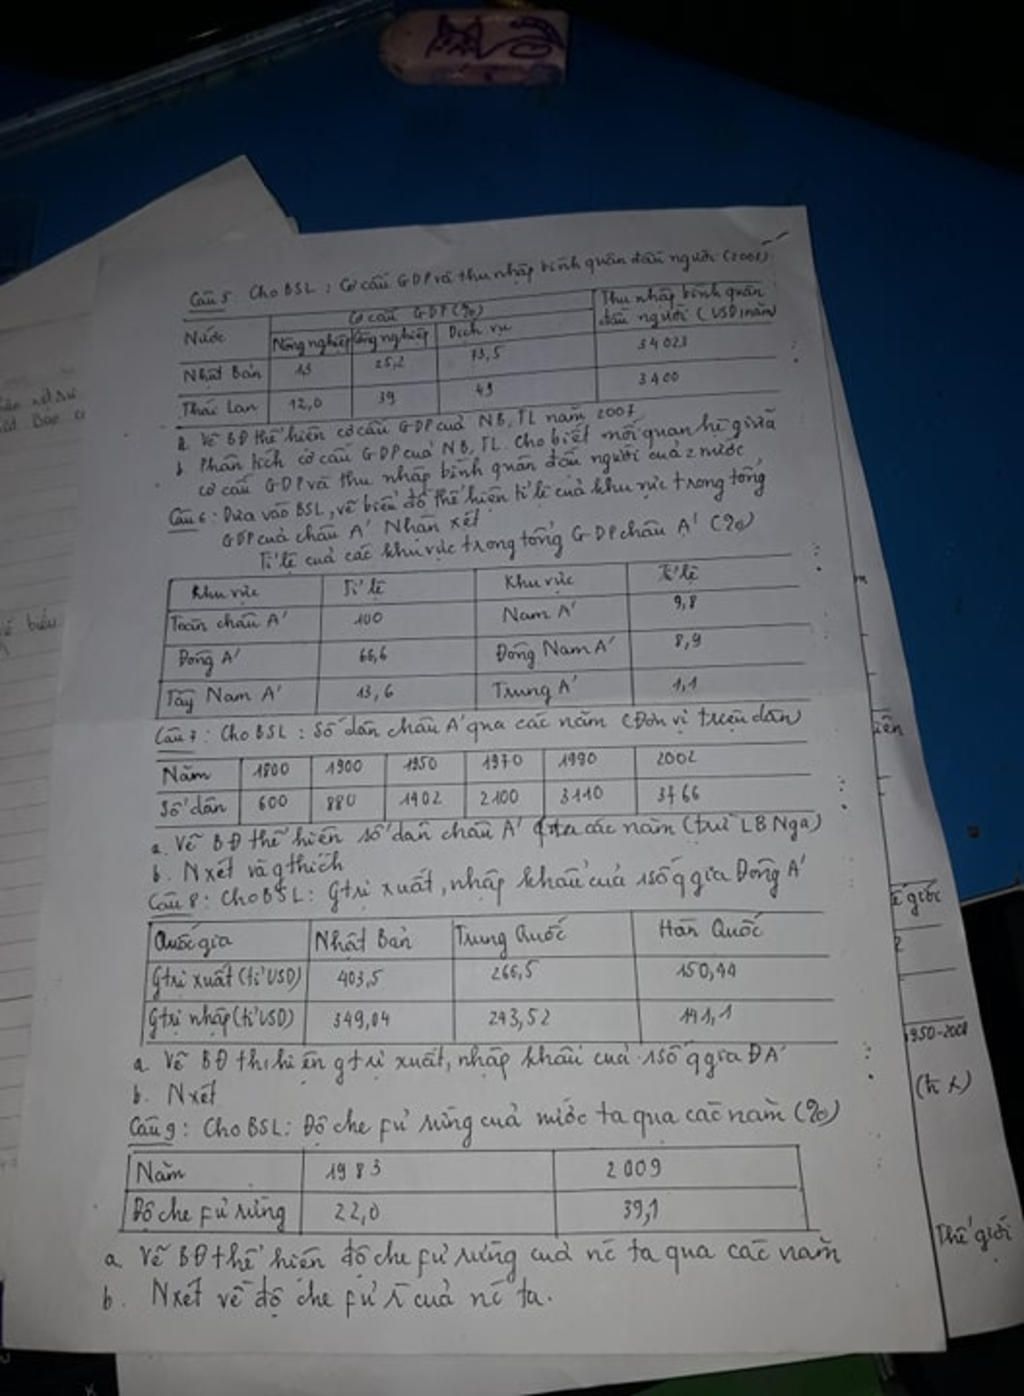 Câu 5 Cho BSL : Cơ cấu GDP và thu nhập bình quân đầu người
Nước Cơ cấu GDP (%) Thu nhập bình quân
đầu người (USD/năm)
Nông nghiệp Công nghiệp Dịch vụ
Nhật Bản 25,2 73,5 34023
Thái Lan 12,0 39 49 3400
a. Vẽ BĐ thể hiện cơ cấu GDP của NB, TL năm 2007
b Phân tích cơ cấu GDP của NB, TL. Cho biết mối quan hệ giữa
cơ cấu GDP và thu nhập bình quân đầu người của 2 nước
Câu 6 : Dựa vào BSL, vẽ biểu đồ thể hiện tỉ lệ của khu vực trong tổng
GDP của châu Á Nhận xét
Tỉ lệ của các khu vực trong tổng GDP châu Á (%)
Khu vực Tỉ lệ Khu vực Tỉ lệ
Toàn châu Á 100 Nam Á 9,8
Đông Á 66,6 Đông Nam Á 8,9
Tây Nam Á 13,6 Trung Á 1,1
Câu 7 : Cho BSL : Số dân châu Á qua các năm (Đơn vị triệu dân)
Năm 1800 1900 1950 1970 1990 2002
Số dân 600 880 1402 2100 3110 3766
a. Vẽ BĐ thể hiện số dân châu Á qua các năm (trừ LB Nga)
b. Nxét và gthích
Câu 8 : Cho BSL : Gtrị xuất, nhập khẩu của 1 số qgia Đông Á
Quốc gia Nhật Bản Trung Quốc Hàn Quốc
Gtrị xuất (tỉ USD) 403,5 266,5 150,44
Gtrị nhập (tỉ USD) 349,04 243,52 141,1
a. Vẽ BĐ thhiện gtrị xuất, nhập khẩu của 1 số qgia ĐÁ
b. Nxét
Câu 9 : Cho BSL : Độ che fủ rừng của nước ta qua các năm (%)
Năm 1983 2009
Độ che fủ rừng 22,0 39,1
a Vẽ BĐ thể hiện độ che fủ rừng của nc ta qua các năm
b. Nxét về độ che fủ r của nc ta.
vẽ biểu
iên
ế giới
1950-2008
Thế giới